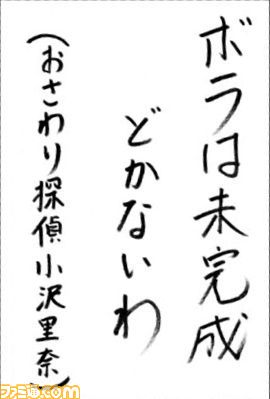 ボラは未完成
どかないわ
(おさわり探偵小沢里奈)
ファミ通.com